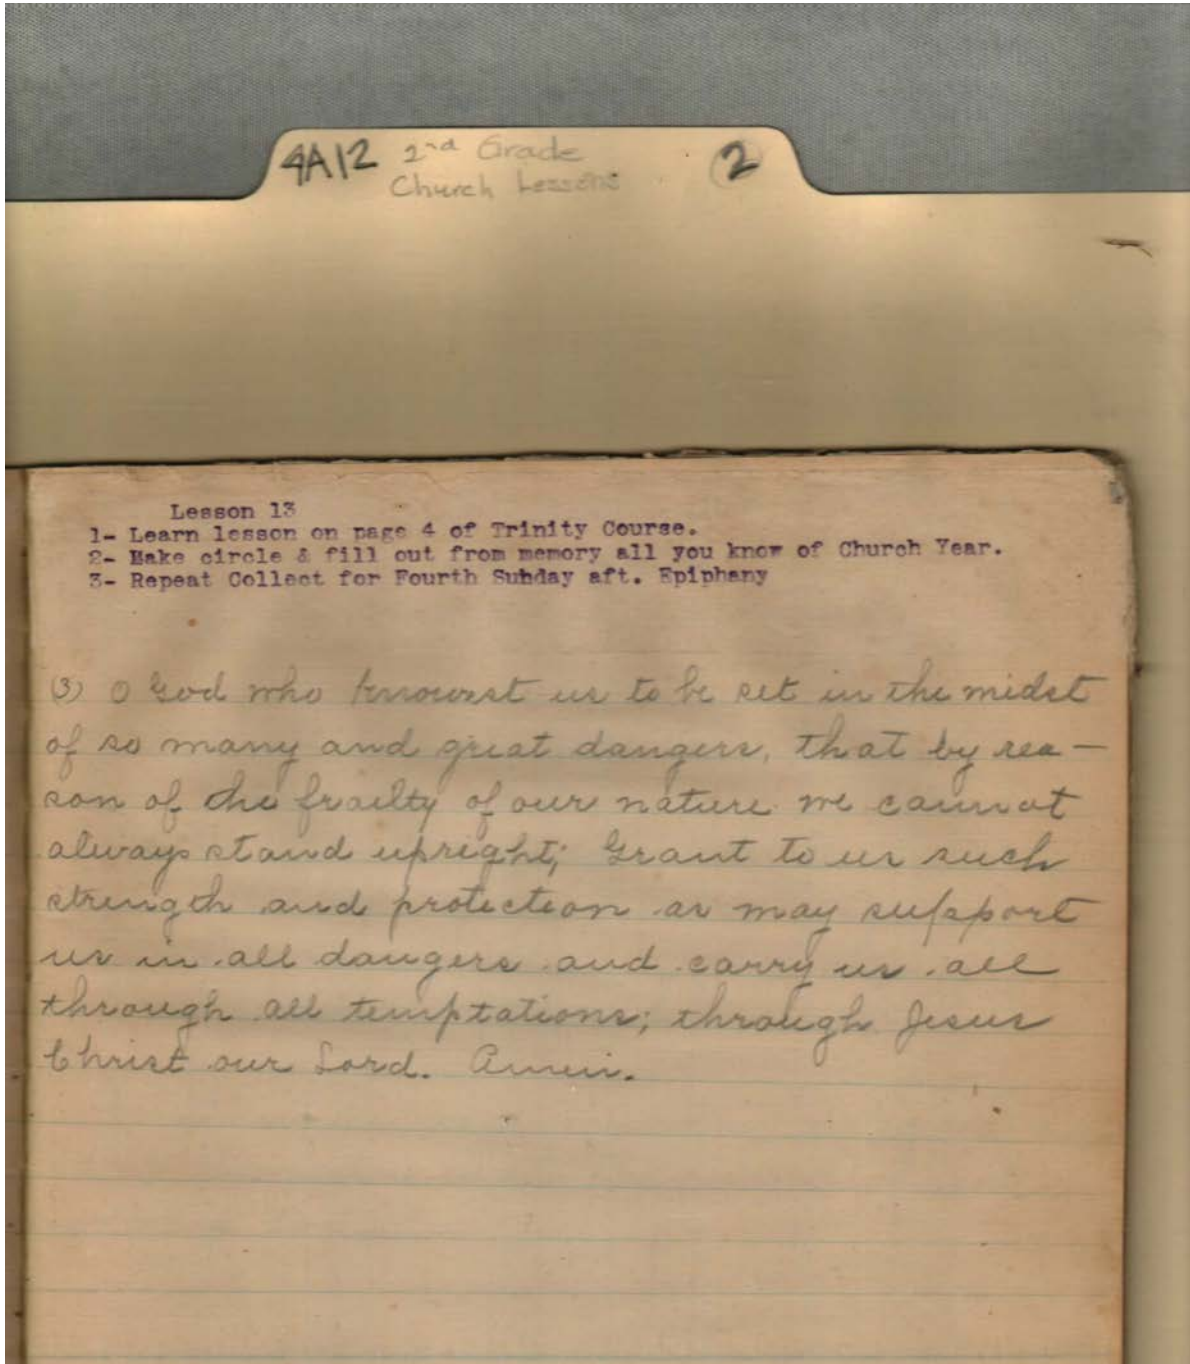 4A12 2nd Grade 2
Church Lessons
Lesson 13
1- Learn lesson on page 4 of Trinity Course.
2- Make circle & fill out from memory all you know of Church Year.
3- Repeat Collect for Fourth Suhday aft. Epiphany
(3) O God who knowest us to be set in the midst
of so many and great dangers, that by rea-
son of the frailty of our nature we cannot
always stand upright; Grant to us such
strength and protection as may support
us in all dangers and carry us all
through all temptations; through Jesus
Christ our Lord. Amen.